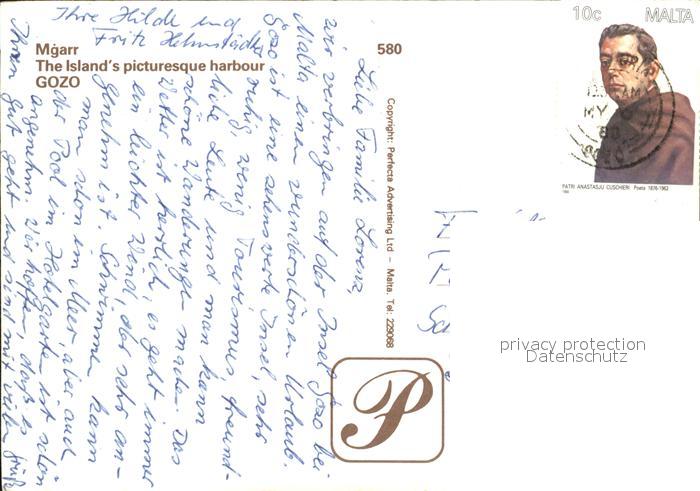 Mġarr
The Island's picturesque harbour
GOZO
580
10c MALTA
PATRI ANASTASJU CUSCHIERI Poeta 1876-1962
Copyright: Perfecta Advertising Ltd – Malta. Tel: 229068
P
privacy protection
Datenschutz
Liebe Familie Lorenz,
wir verbringen auf der Insel Gozo bei
Malta einen wunderschönen Urlaub.
Gozo ist eine sehenswerte Insel, sehr
ruhig, wenig Tourismus, freund-
liche Leute und man kann
schöne Wanderungen machen. Das
Wetter ist herrlich, es geht immer
ein leichter Wind, der sehr an-
genehm ist. Schwimmen kann
man schon im Meer, aber auch
der Pool im Hotelgarten ist schon
angenehm. Wir hoffen, daß es
Ihnen gut geht und sind mit vielen Grüßen
Ihre Hilde und
Fritz